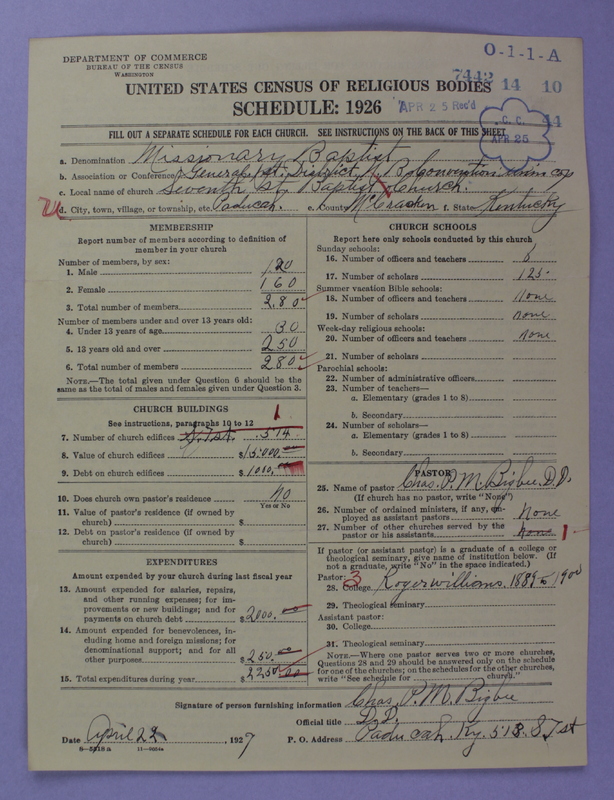 O-1-1-A
DEPARTMENT OF COMMERCE
BUREAU OF THE CENSUS
WASHINGTON
7442 14 10
UNITED STATES CENSUS OF RELIGIOUS BODIES
SCHEDULE: 1926
APR 25 Rec'd
44
C. C.
APR 25
FILL OUT A SEPARATE SCHEDULE FOR EACH CHURCH. SEE INSTRUCTIONS ON THE BACK OF THIS SHEET
a. Denomination Missionary Baptist
b. Association or Conference General Ast. District, B. Convention
c. Local name of church Seventh St. Baptist Church.
d. City, town, village, or township, etc. Paducah. e. County McCracken f. State Kentucky
MEMBERSHIP
Report number of members according to definition of member in your church
Number of members, by sex:
1. Male 120
2. Female 160
3. Total number of members 280
Number of members under and over 13 years old:
4. Under 13 years of age 30
5. 13 years old and over 250
6. Total number of members 280
NOTE.—The total given under Question 6 should be the same as the total of males and females given under Question 3.
CHURCH BUILDINGS
1
See instructions, paragraphs 10 to 12
7. Number of church edifices S. 7. st. 514
8. Value of church edifices $15.000.00
9. Debt on church edifices $1010.
10. Does church own pastor's residence No
Yes or No
11. Value of pastor's residence (if owned by church) $
12. Debt on pastor's residence (if owned by church) $
EXPENDITURES
Amount expended by your church during last fiscal year
13. Amount expended for salaries, repairs, and other running expenses; for improvements or new buildings; and for payments on church debt $2000.
14. Amount expended for benevolences, including home and foreign missions; for denominational support; and for all other purposes $250.
15. Total expenditures during year $2250.00
CHURCH SCHOOLS
Report here only schools conducted by this church
Sunday schools:
16. Number of officers and teachers 8
17. Number of scholars 125.
Summer vacation Bible schools:
18. Number of officers and teachers None
19. Number of scholars None
Week-day religious schools:
20. Number of officers and teachers None
21. Number of scholars
Parochial schools:
22. Number of administrative officers
23. Number of teachers—
a. Elementary (grades 1 to 8)
b. Secondary
24. Number of scholars—
a. Elementary (grades 1 to 8)
b. Secondary
PASTOR
25. Name of pastor Chas. P. M. Bigbee. D.D.
(If church has no pastor, write "None")
26. Number of ordained ministers, if any, employed as assistant pastors None
27. Number of other churches served by the pastor or his assistants None 1
If pastor (or assistant pastor) is a graduate of a college or theological seminary, give name of institution below. (If not a graduate, write "No" in the space indicated.)
Pastor: 3
28. College Roger williams. 1889 to 1900
29. Theological seminary
Assistant pastor:
30. College
31. Theological seminary
NOTE.—Where one pastor serves two or more churches, Questions 28 and 29 should be answered only on the schedule for one of the churches; on the schedules for the other churches, write "See schedule for church."
Signature of person furnishing information Chas. P. M. Bigbee
Official title D.D.
Date April 22, 1927 P. O. Address Paducah. Ky. 513. S 7 st
8—5318 a 11—9004a